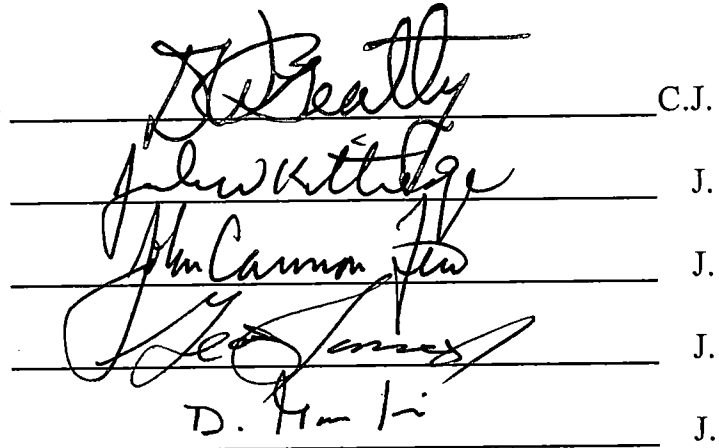 DWBeatty C.J.
John W Kittredge J.
John Cannon Few J.
Geo James J.
D. J.